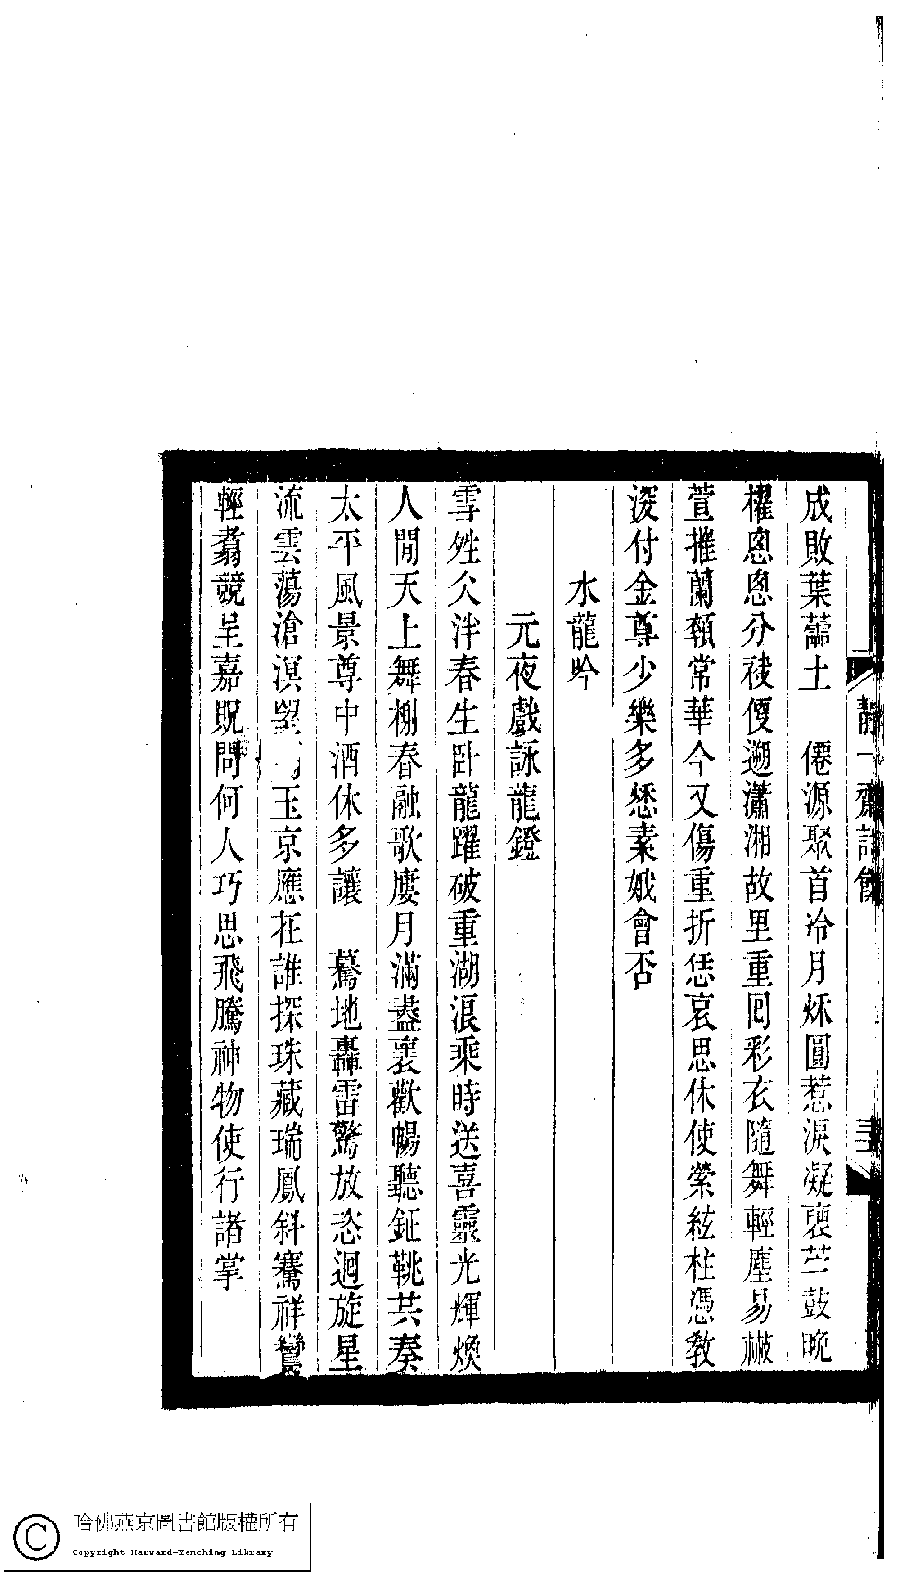 靜一齋詩餘
成敗葉蘦土　僊源聚首冷月秌圓惹淚凝裏芒鼓晚
櫂悤悤分袂便遡瀟湘故里重回彩衣隨舞輕塵易
萱摧蘭顇常華今又傷重折恁哀思休使縈絃柱憑教
深付金尊少樂多愁素娥會否
水龍吟
元夜戲詠龍鐙
雪姓仌泮春生臥龍躍破重湖浪乘時送喜靈光輝煥
人閒天上舞棚春融歌廔月滿盡裏歡暢聽鉦鞉共奏
太平風景尊中酒休多讓　驀地轟雷驚放恣迴旋星
流雲蕩滄溟玉京應在誰探珠藏瑞鳳斜騫祥鸞
輕翥競呈嘉貺問何人巧思飛騰神物使行諸掌
哈佛燕京圖書館版權所有
Copyright Harvard-Yenching Library